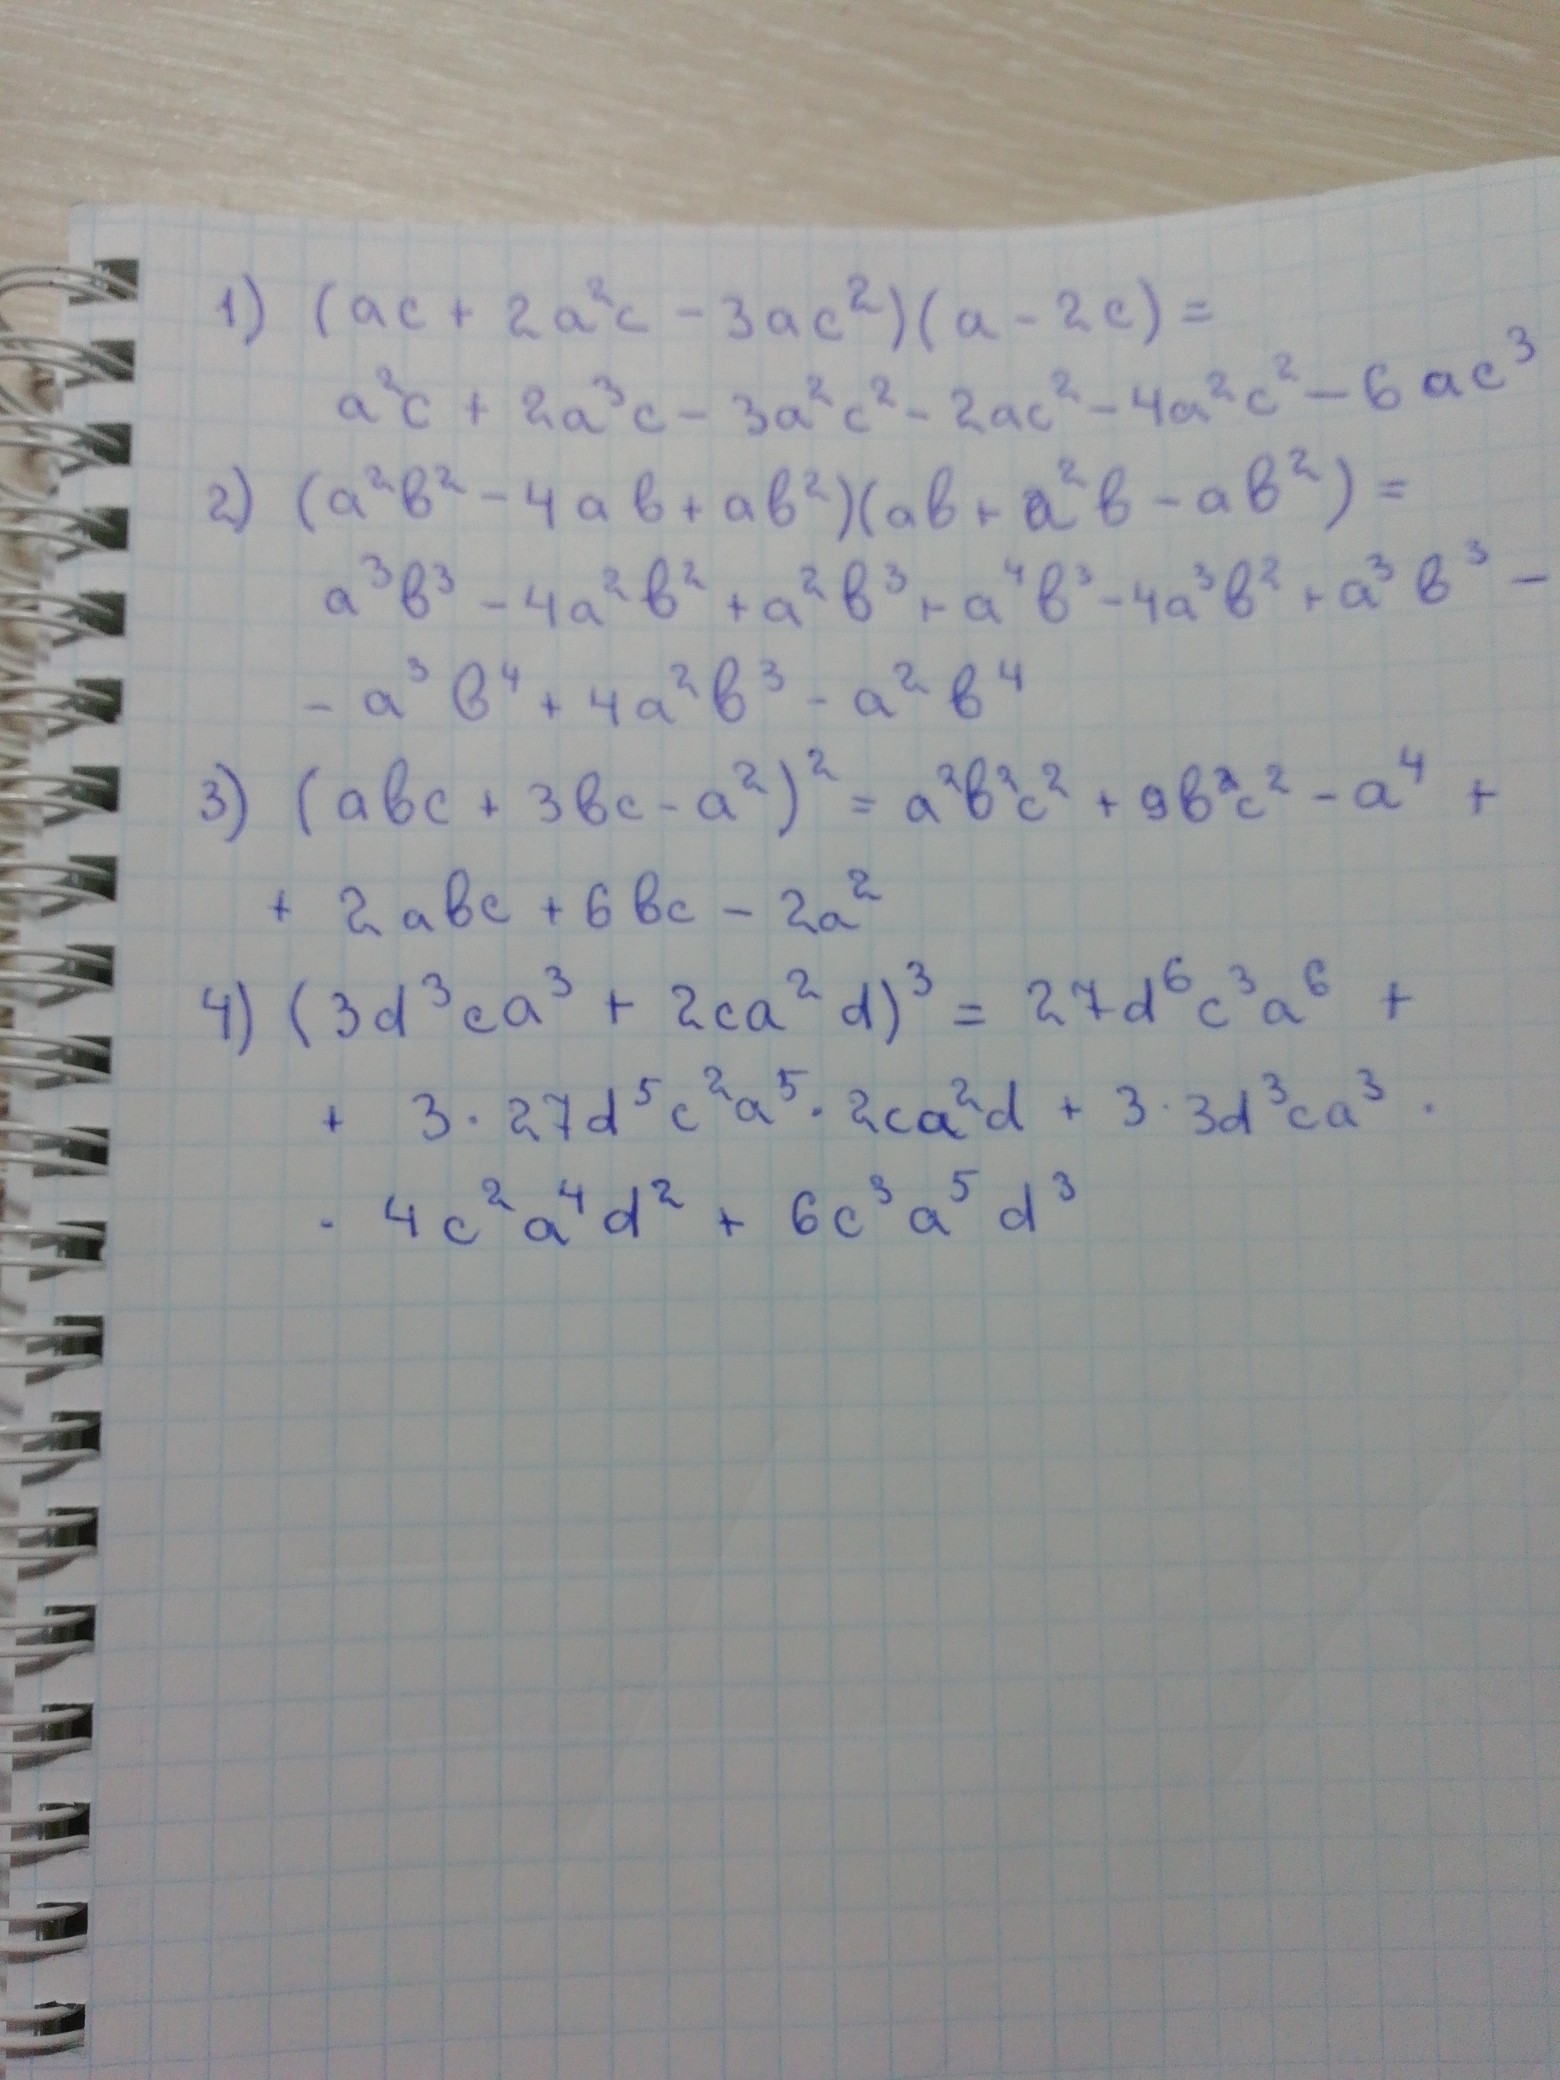 1) (ac + 2a²c - 3ac²)(a - 2c) =
a²c + 2a³c - 3a²c² - 2ac² - 4a²c² - 6ac³
2) (a²в² - 4ав + ав²)(ав + a²в - ав²) =
a³в³ - 4a²в² + a²в³ + a⁴в³ - 4a³в² + a³в³ -
- a³в⁴ + 4a²в³ - a²в⁴
3) (авс + 3вс - a²)² = a²в²с² + 9в²с² - a⁴ +
+ 2авс + 6вс - 2a²
4) (3d³ca³ + 2ca²d)³ = 27d⁶c³a⁶ +
+ 3 · 27d⁵c²a⁵ · 2ca²d + 3 · 3d³ca³ ·
· 4c²a⁴d² + 6c³a⁵d³